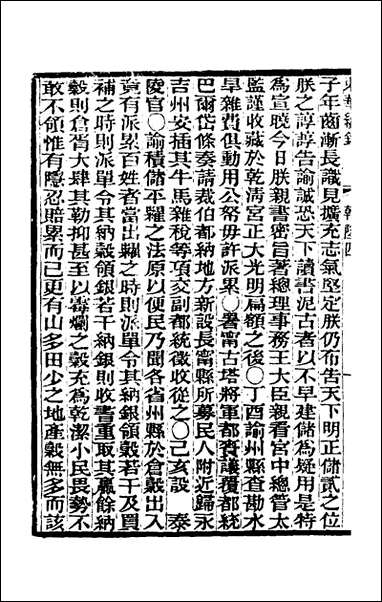 子年齒漸長識見擴充志氣堅定朕仍布告天下明正儲貳之位
朕之諄諄告諭誠恐天下讀書泥古者以不早建儲為疑用是特
為宣曉今日朕親書密旨著總理事務王大臣親看宮中總管太
監謹收藏於乾清宮正大光明扁額之後○丁酉諭州縣查勘水
旱雜費俱動用公帑毋許派累○署甯古塔將軍都賚議覆都統
巴爾岱條奏請裁伯都納地方新設長甯縣所募民人附近歸永
吉州安插其牛馬雜稅等項交副都統徵收從之○己亥設 泰
陵官○諭積儲平糶之法原以便民乃聞各省州縣於倉穀出入
竟有派累百姓者當出糶之時則派單令其納銀領穀若干及買
補之時則派單令其納穀領銀若干納銀則收書重取其贏餘納
穀則倉胥大肆其勒抑甚至以霉爛之穀充為乾潔小民畏勢不
敢不領惟有隱忍賠累而已更有山多田少之地產穀無多而該